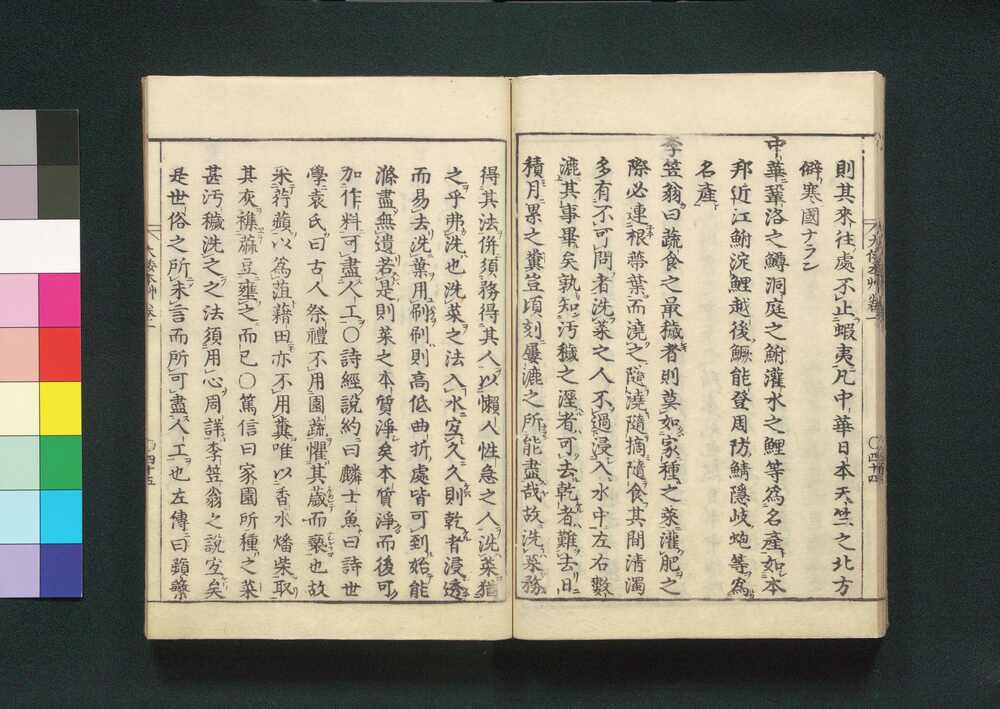 則其來往處不止蝦夷凡中華日本天竺之北方
僻寒國ナラン
中華鞏洛之鱒洞庭之鮒灌水之鯉等為名産如本
邦近江鮒淀鯉越後鱖能登周防鯖隠岐炮等為
名產
李笠翁曰蔬食之最穢者則莫如家種之菜灌肥之
際必連根蒂葉而澆之隨澆隨摘隨食其間清濁
多有不可問者洗菜之人不過浸入水中左右數
漉其事畢矣孰知汚穢之溼者可去乾者難去日
積月累之糞豈頃刻屢漉之所能盡哉故洗菜務
得其法併須務得其人以懶人性急之人洗菜猶
之乎弗洗也洗菜之法入水宜久久則乾者浸透
而易去洗葉用刷刷則高低曲折處皆可到始能
滌盡無遺若是則菜之本質淨矣本質淨而後可
加作料可盡人工〇詩經說約曰麟士魚曰詩世
學袁氏曰古人祭禮不用園蔬懼其薉而褻也故
采荇蘋以為菹藉田亦不用糞唯以香水燔柴取
其灰襍蒜豆壅之而已〇篤信曰家園所種之菜
甚汚穢洗之之法須用心周詳李笠翁之說宜矣
是世俗之所未言而所可盡人工也左傳曰蘋蘩
〇四十四
〇四十五